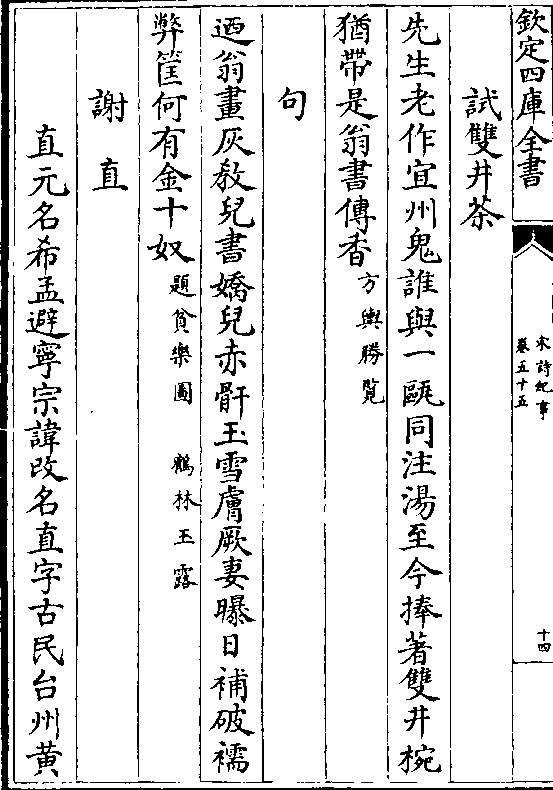 欽定四庫全書
宋詩紀事
卷五十五
十四
試雙井茶
先生老作宜州鬼誰與一甌同注湯至今捧著雙井椀
猶帶是翁書傳香方輿勝覽
句
迺翁畫灰敎兒書嬌兒赤骭玉雪膚厥妻曝日補破襦
弊筐何有金十奴題貧樂圖　鶴林玉露
謝直
直元名希孟避寧宗諱改名直字古民台州黃